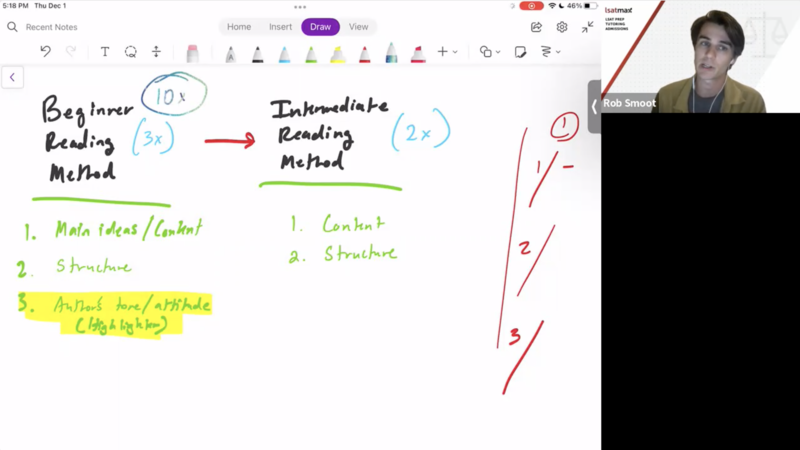 5:18 PM Thu Dec 1
46%
Recent Notes
Home Insert Draw View
lsatmax
LSAT PREP
TUTORING
ADMISSIONS
Rob Smoot
10x
Beginner
Reading (3x)
Method
Intermediate
Reading (2x)
Method
1. Main ideas/Content
2. Structure
3. Author's tone/attitude
(Highlighter)
1. Content
2. Structure
1
1
2
3